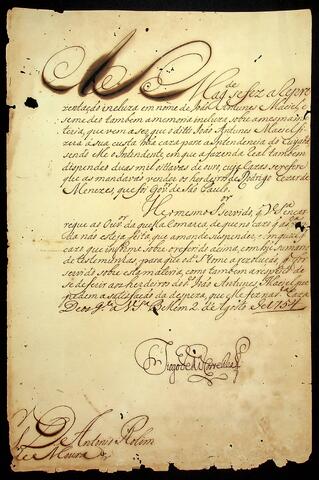 A S. Mag.de se fez a Repre
zentação incluza em nome de João Antunes Maciel, e
se me deo tambem a memoria incluza sobre a mesma ma
teria, que vem a ser que o ditto João Antunes Maciel fi
zera à sua custa hũa caza para a Intendencia do Cuyabá
sendo elle o Intendente, em que a fazenda Real tambem
dispendeo duas mil oitavas de ouro, cujas Cazas se refere
que as mandara vender os herdeyros de Rodrigo Cezar de
Menezes, que foi Gov.or de São Paulo.
He o mesmo S.r servido, q̃ V. S.a encar
regue ao Ouv.or da quella Comarca de
não esteja feita, que a mande suspender, e em qual quer
cazo que informe sobre o referido acima, com hũ sumario
de testemunhas, para que
servido sobre esta materia, como tambem a respeito de
se deferir aos herdeiros do d.o João Antunes Maciel, que
pedem a satisfação da despeza, que elle fez nas d.as Cazas.
Deos g.e a V. S.a Bellem 2 de Agosto de 1754
Diogo de M.ça Corte Real
S.r D. Antonio Rolim
de Moura